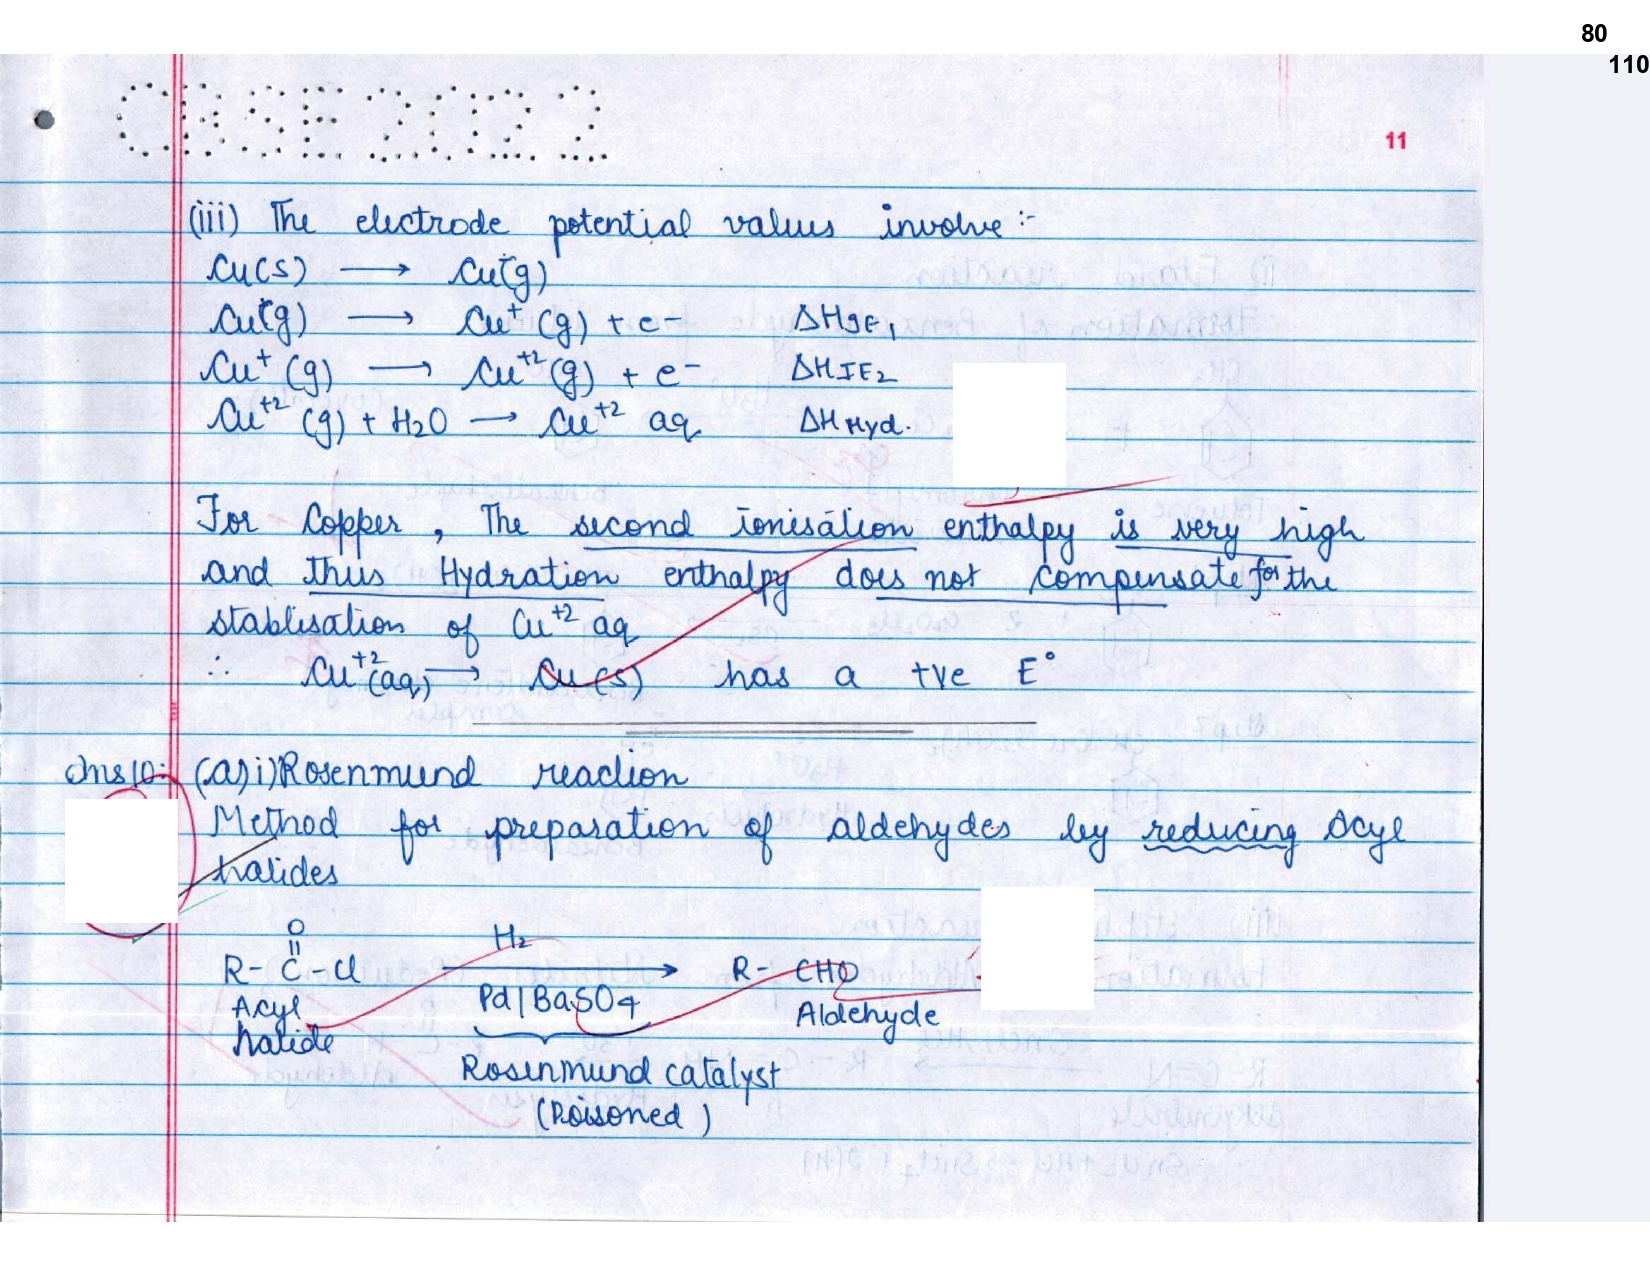 80
110
CBSE 2022
11
(iii) The electrode potential values involve :-
Cu(s) ⟶ Cu(g)
Cu(g) ⟶ Cu⁺(g) + e⁻ ΔHIE₁
Cu⁺(g) ⟶ Cu⁺²(g) + e⁻ ΔHIE₂
Cu⁺²(g) + H₂O ⟶ Cu⁺² aq ΔH Hyd.
For Copper , The second ionisation enthalpy is very high
and thus Hydration enthalpy does not compensate for the
stablisation of Cu⁺² aq
∴ Cu⁺²(aq) ⟶ Cu(s) has a +ve E°
Ans 10:- (a) i) Rosenmund reaction
Method for preparation of aldehydes by reducing Acyl
halides
O
H₂
R-C-Cl ⟶ R-CHO
Pd|BaSO₄
Acyl Aldehyde
halide
Rosenmund catalyst
(Poisoned)